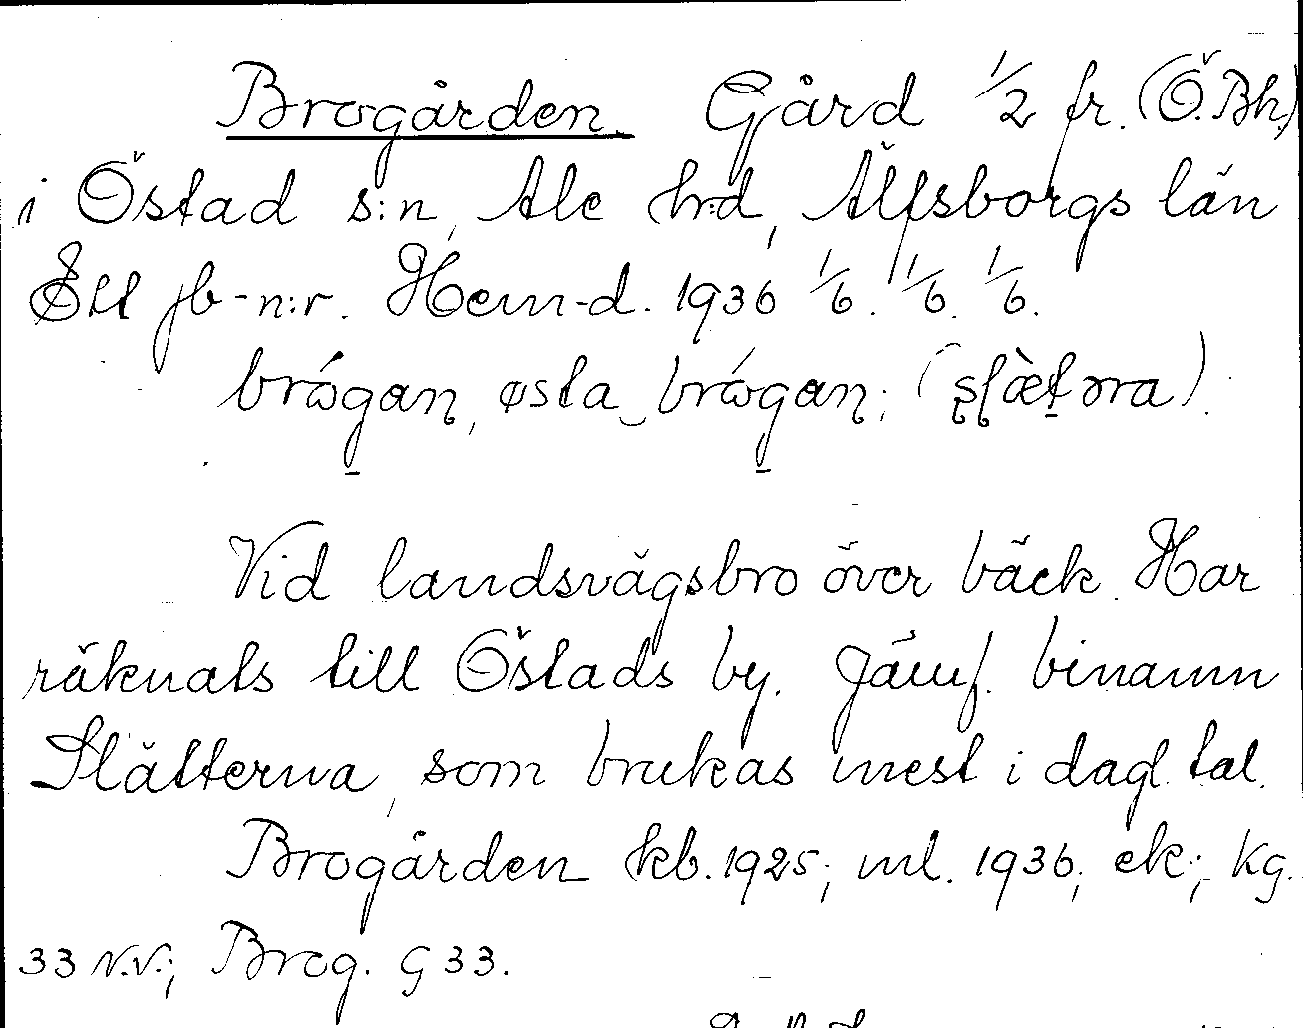 Brogården. Gård 1/2 fr. (Ö.Bh.)
i Östad s:n, Ale h:d, Älfsborgs län
Ett jb-n:r. Hem-d. 1936 1/6. 1/6. 1/6.
brógan, østa brógan; (slæ̀təra).
Vid landsvägsbro över bäck. Har
räknats till Östads by. Jämf. binamn
Slätterna, som brukas mest i dagl. tal.
Brogården kb. 1925; ml. 1936; ek; kg.
33 N.V.; Brog. G 33.